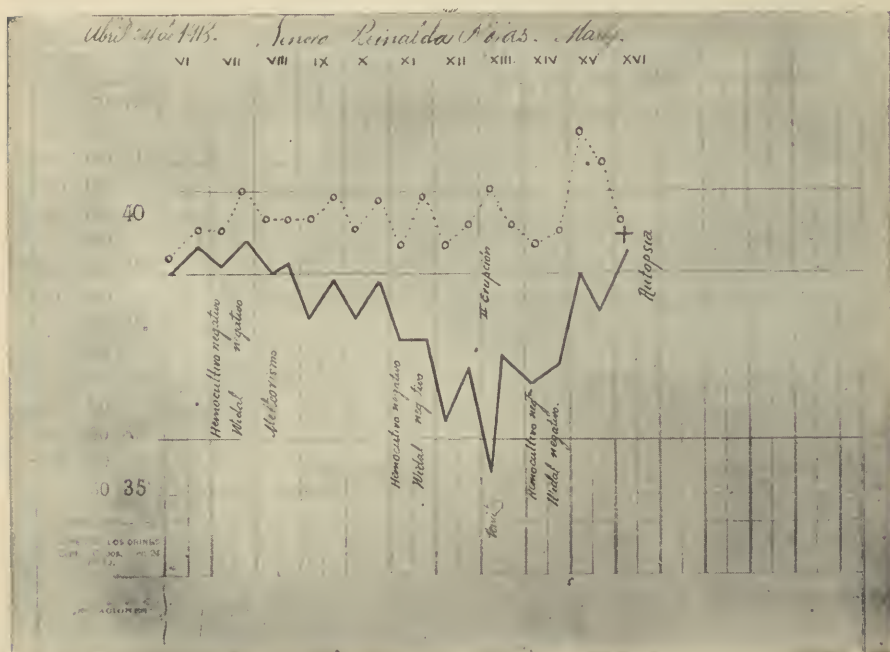 Abril 24 de 1913. Reinalda Rojas.
VI VII VIII IX X XI XII XIII. XIV XV XVI
40
Hemocultivo negativo
Widal negativo
Meteorismo
Hemocultivo negativo
Widal neg tivo
II Erupción
Hemocultivo neg
Widal negativo.
Autopsia
35
LOS ORINES